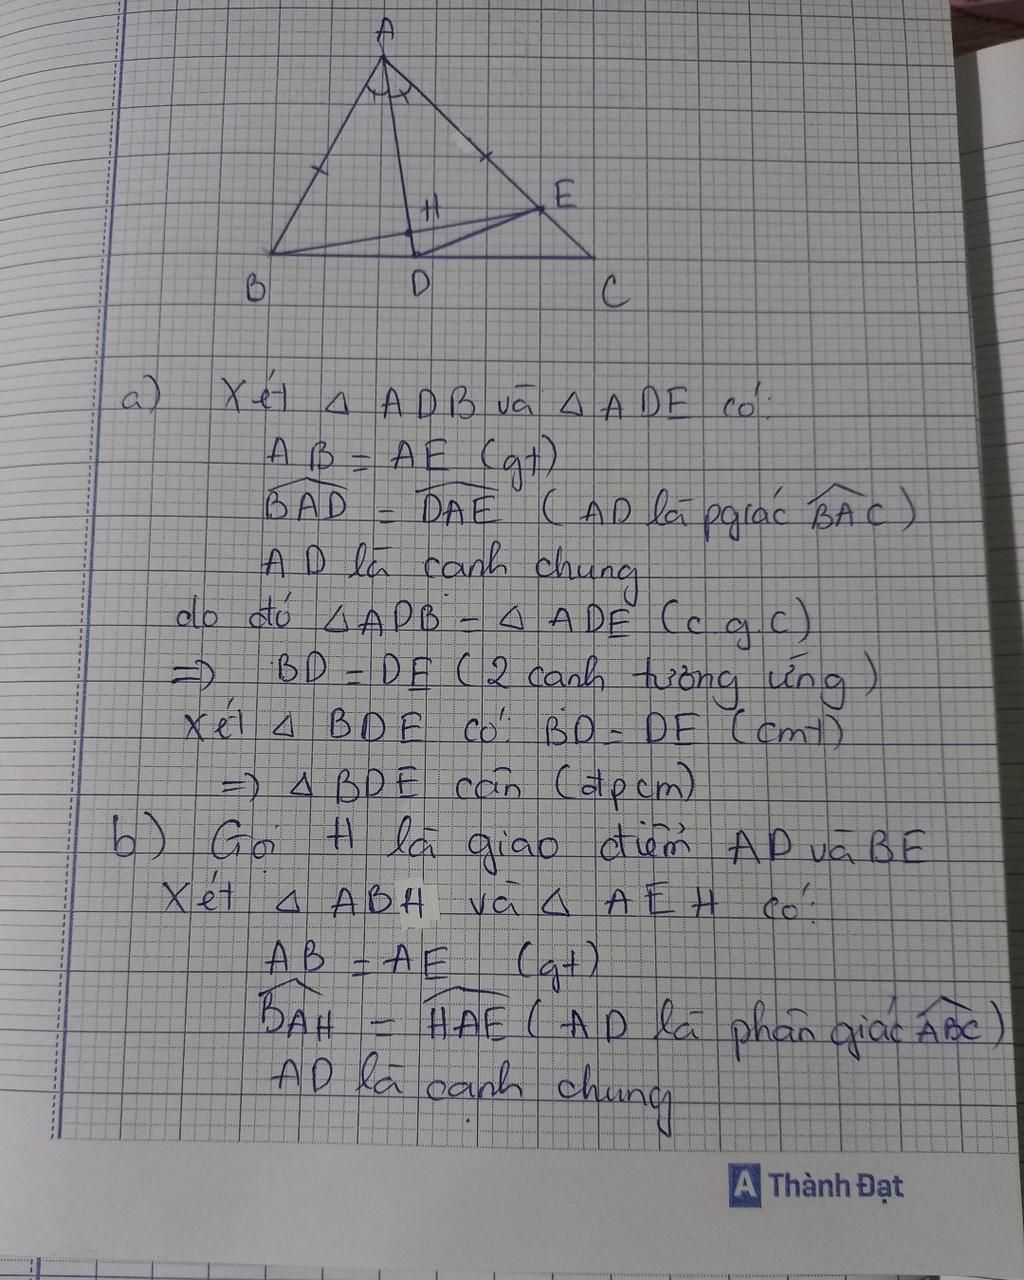 A
H
E
B
D
C
a) Xét Δ ADB và Δ ADE có:
AB = AE (gt)
BAD = DAE ( AD là pgiác BAC )
AD là canh chung
do đó Δ ADB = Δ ADE (c g.c)
=> BD = DE ( 2 canh tương ứng )
Xét Δ BDE có: BD = DE (cmt)
=> Δ BDE cân (đpcm)
b) Gọi H là giao điểm AD và BE
Xét Δ ABH và Δ AEH có:
AB = AE (gt)
BAH = HAE ( AD là phân giác ABC )
AD là canh chung
A Thành Đạt